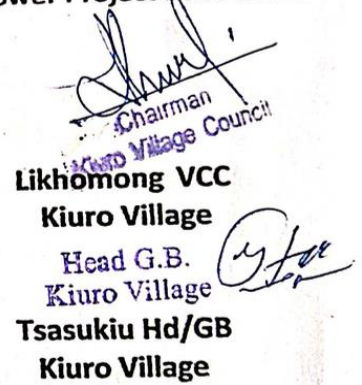 Chairman
Kiuro Village Council
Likhomong VCC
Kiuro Village
Head G.B.
Kiuro Village
Tsasukiu Hd/GB
Kiuro Village